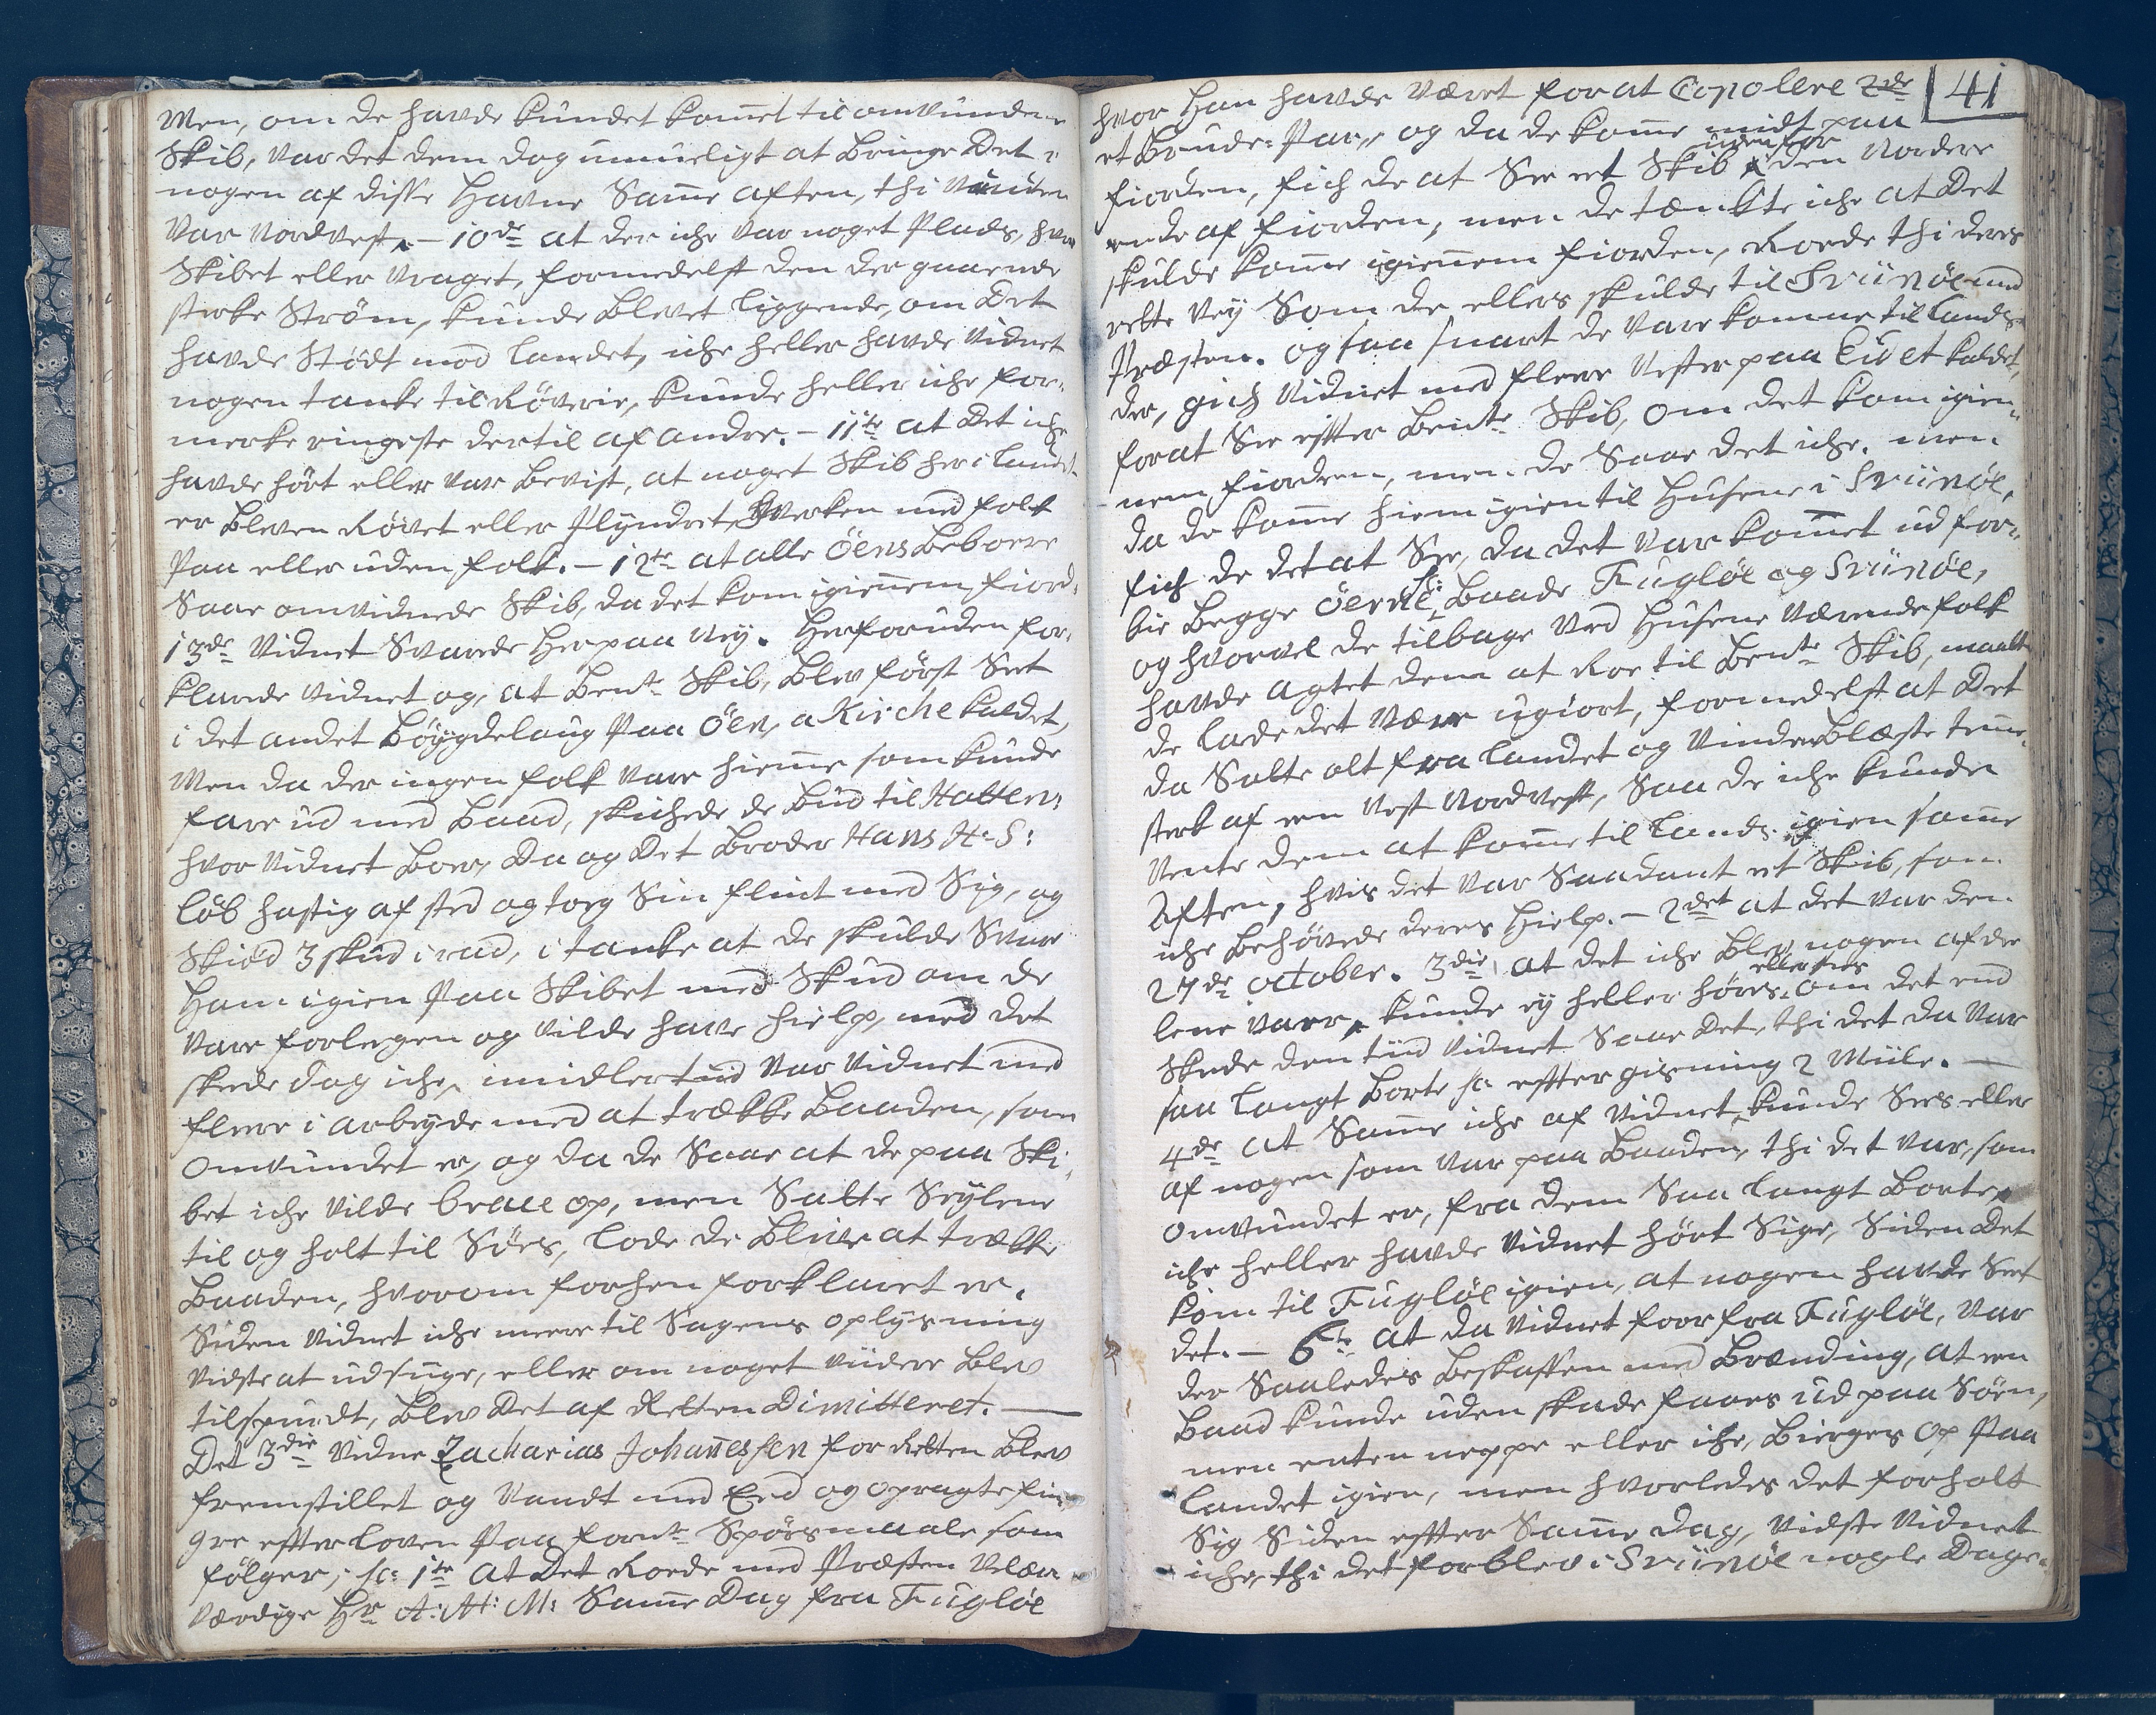 Men, om de havde kundet komet til omvundene
Skib, var det dem dog umueligt at bringe Det i
nogen af disse Havne Same aften, thi Vinden
var Nordvest. – 10de at der iche var noget Plads, hvor
Skibet eller Vraget, formedelst den der gaaende
sterke Ström, kunde blevet liggende, om Det
havde Stödt mod Landet, iche heller havde Vidnet
nogen tanke til Röverie, kunde heller iche for-
merke ringeste dertil af andre. – 11te at Det iche
havde hört eller var bevist, at noget Skib her i Landet
er bleven Rövet eller Plyndret, hverken med folk
Paa eller uden folk. – 12te at alle Öens Beboere
Saae omvidnede Skib, da det kom igienem fiord.
13de Vidnet Svarede Herpaa Ney. Herforuden for-
klarede Vidnet og, at bente Skib, blev först Seet
i det andet Böygdelaug Paa Öen, a Kirche kaldet,
Men da der ingen folk vare hieme som kunde
fare ud med Baad, skichede de bud til Hatten:
hvor Vidnet boer, Da og Det Broder Hans H: S:
löb hastig af sted og toeg Sin flint med Sig, og
Skiöd 3 skud i rad, i tanke at de skulde Svare
Ham igien Paa Skibet med Skud om de
vare forlegen og vilde have hielp, med det
skede dog iche, imidlertiid var Vidnet med
fleere i arbeyde med at trække Baaden, som
omvundet er, og da de Saae at de paa Ski-
bet iche vilde brace op, men Satte Seylene
til og holt til Söes, lode de blive at trække
Baaden, hvorom forhen forklaret er.
Siden Vidnet iche meere til Sagens oplysning
vidste at udsuge, eller om noget viidere blev
tilspurdt, blev Det af Retten Dimitteret. —
Det 3die Vidne Zacharias Johanessen for Retten blev
fremstillet og Vandt med Eed og opragte fin-
gre effter Loven Paa forne Spörsmaale som
fölger; sc: 1te at Det Roede med Præsten Velær-
værdige Hr A: H: M: Same Dag fra Fuglöe
41
hvor Han havde været for at Copolere 2de
et Brude-Par, og da de kome midt paa
fiorden, fich de at See et Skib uden for den Nordere
ende af fiorden, men de tænkte iche at Det
skulde kome igienem fiorden, Roede thi deres
rette Vey Som de ellers skulde til Sviinöe med
Præsten. og saa snart de vare komne til Lands
der, gich Vidnet med fleere Vester paa Eidet kaldet,
for at See effter bente Skib, om det kom igien-
nem fiorden, men de Saae det iche. men
da de kome hiem igien til Husene i Sviinöe,
fich de det at See, da det var komet ud for-
bie begge Öerne sc: Baade Fuglöe og Sviinöe,
og hvorvel de tilbage ved Husene værende folk
havde agtet dem at Roe til bente Skib, maatte
de lade det være ugiort, formedelst at Det
da Satte alt fra Landet og Vinden blæste temme-
sterk af een Vest Nordvest, Saa de iche kunde
vente dem at kome til Lands igien same
Aften, hvis det var Saadant et Skib, som
iche behövede deres Hielp. – 2det at det var den
27de october. 3die, at det iche blev nogen af de
lene vaer, kunde ey heller höres eller sees om det end
Skede den tiid Vidnet Saae Det, thi det da var
saa langt borte sc: effter gisning 2 Miile. —
4de at Same iche af Vidnet, kunde Sees eller
af nogen som var paa Baaden, thi det var, som
omvundet er, fra dem Saa langt borte,
iche heller havde Vidnet hört Sige, Siden Det
kom til Fuglöe igien, at nogen havde Seet
det. – 6te at da Vidnet foor fra Fuglöe, var
der Saaledes beskaffen med Brænding, at een
Baad kunde uden skade faaes ud paa Söen,
men enten neppe eller iche, bierges op Paa
Landet igien, men hvorledes det forholt
Sig Siden effter Same dag, vidste Vidnet
iche, thi det forblev i Sviinöe nogle Dage.